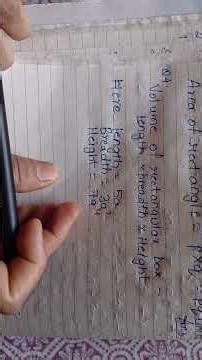 Area of rectangle = p×q = pq
Q4.
Volume of rectangular box =
length × breadth × Height
Here length = 5a
Breadth = 3a²
Height = 7a⁴